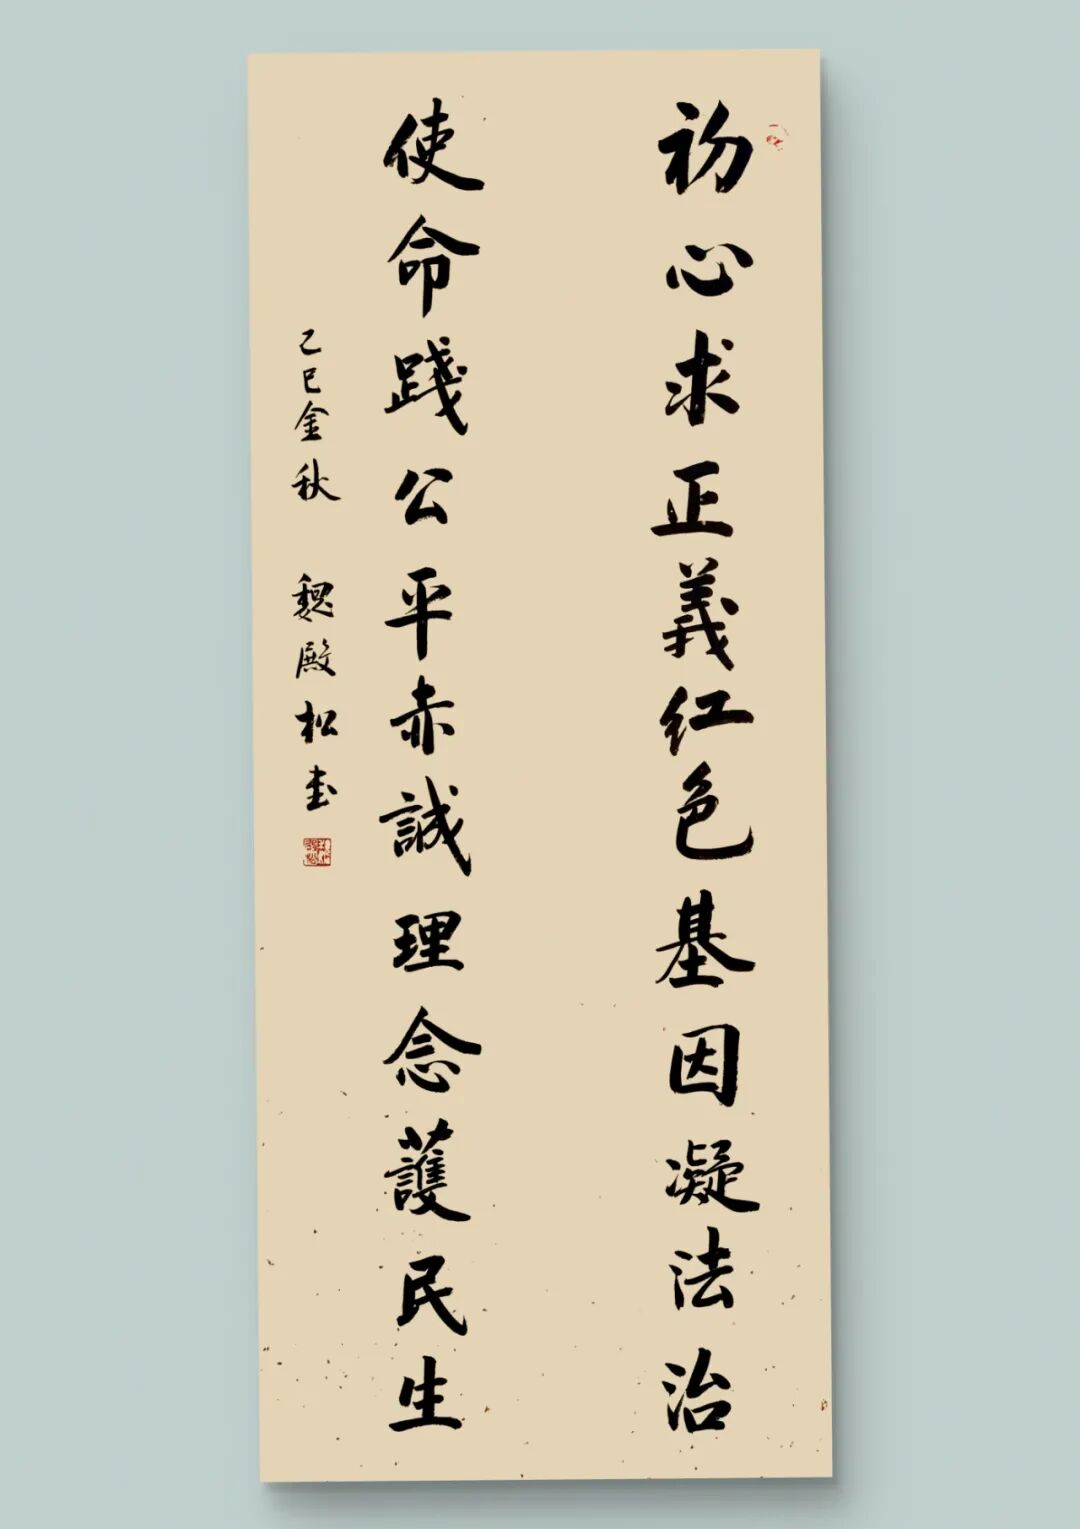 初心求正義红色基因凝法治
使命踐公平赤誠理念護民生
乙巳金秋 魏殿松书